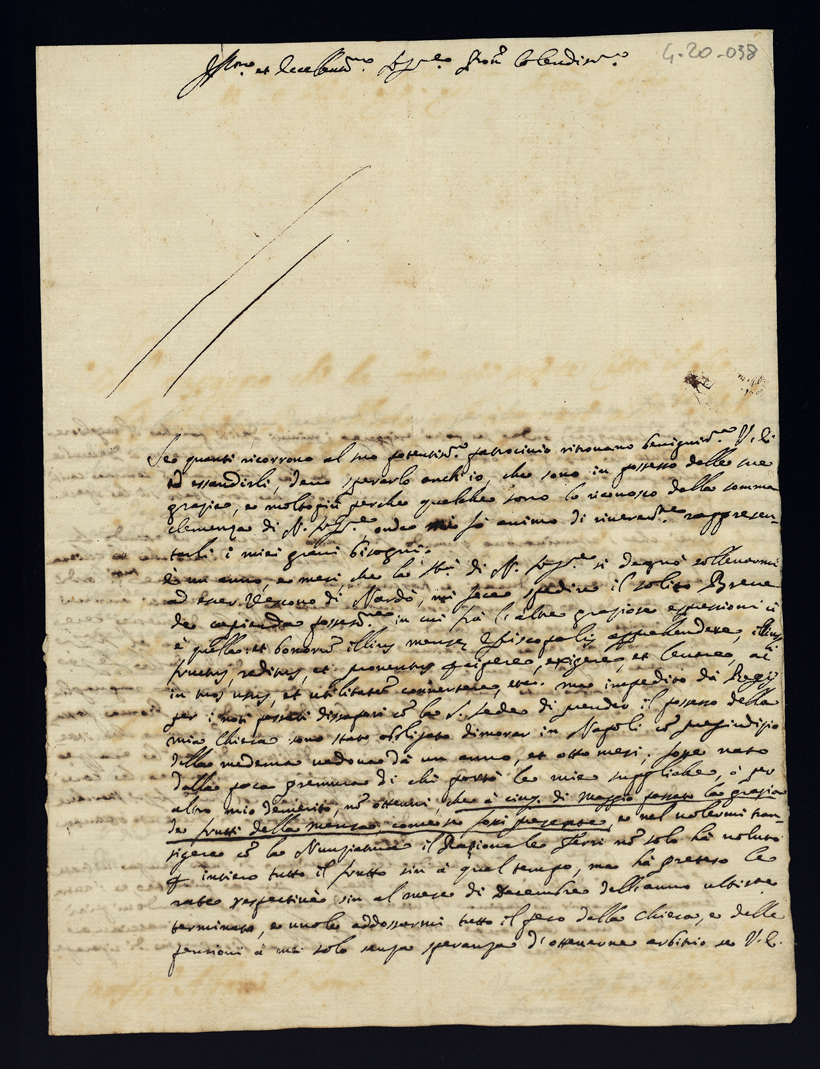 4-20-038
Ill.mo et Eccellent.mo Sig.re Pron Colendis.mo
Se quanti ricorrono al suo potentis.mo patrocinio ritrovano benignis.mo V. E.
ad essaudirli, devo sperarlo anch'io, che sono in possesso delle sue
grazie, e molto più perche qualche sono lo riconosco dalla somma
clemenza di N. Sig.re onde mi fà animo di riverent.e rappresen-
tarli i miei gravi bisogni.
È un anno, e mesi che la S.tà di N. Sig.re si degnò sollevarmi
ad esser Vescovo di Nardò, mi fece spedire il solito Breve
de capienda possess.ne in cui frà l'altre graziose espressioni vi
è quella: et bonorũ illius mensæ Episcopalis apprehendere, illiusq
fructus, reditus, et proventus percipere, exigere, et levare, ac
in tuos usus, et utilitatem convertere, etc. ma impedito da Regij
per i noti passati dissapori cõ la S. Sede di prender il possesso della
mia Chiesa sono stato obligato dimorar in Napoli cõ pregiudizio
della medema vedova dà un anno, et otto mesi, fosse nato
dalla poca premura di chi portò le mie suppliche, ò per
altro mio demerito, nõ ottenni, che à cinq. di Maggio passato la grazia
de frutti della mensa, come se fossi presente, e nel volermi tran-
sigere cõ la Nunziatura il Razionale Ferri nõ solo hà voluto
p intiero tutto il frutto sin à quel tempo, ma hà preteso le
rate respettive sin al mese di Decembre dell'anno ultim.te
terminato, e vuole addossarmi tutto il peso della Chiesa, e delle
pensioni à mè solo senza speranza d'ottenerne arbitrio se V. E.